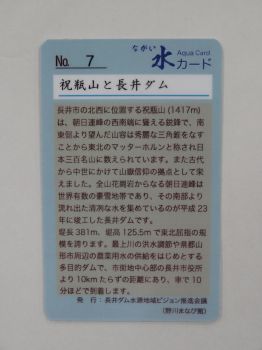 No. 7
ながい
水カード
Aqua Card
祝瓶山と長井ダム
長井市の北西に位置する祝瓶山(1417m)
は、朝日連峰の西南端に聳える鋭峰で、南
東側より望んだ山容は秀麗な三角錐をなす
ことから東北のマッターホルンと称され日
本三百名山に数えられています。また古代
から中世にかけて山嶽信仰の拠点として栄
えました。全山花崗岩からなる朝日連峰は
世界有数の豪雪地帯であり、その南部より
流れ出た清冽な水を集めているのが平成23
年に竣工した長井ダムです。
堤長381m、堤高125.5mで東北屈指の規
模を誇ります。最上川の洪水調節や県都山
形市周辺の農業用水の供給をはじめとする
多目的ダムで、市街地中心部の長井市役所
より10kmたらずの距離にあり、車で10
分ほどで到着します。
発 行:長井ダム水源地域ビジョン推進会議
(野川まなび館)